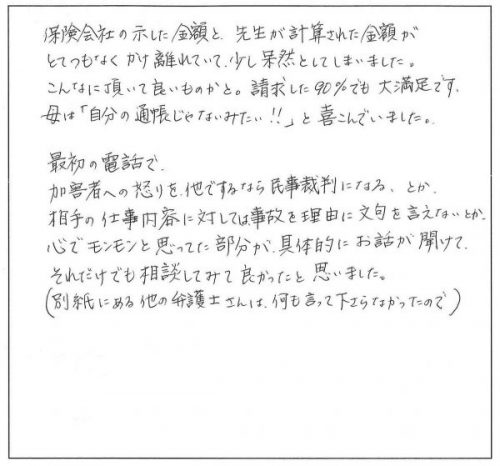 保険会社の示した金額と、先生が計算された金額が
とてつもなくかけ離れていて、少し呆然としてしまいました。
こんなに頂いて良いものかと。請求した90%でも大満足です。
母は「自分の通帳じゃないみたい!!」と喜こんでいました。
最初の電話で、
加害者への怒りを、他でするなら民事裁判になる、とか、
相手の仕事内容に対しては、事故を理由に文句を言えないとか、
心でモンモンと思ってた部分が、具体的にお話が聞けて、
それだけでも相談してみて良かったと思いました。
(別紙にある他の弁護士さんは、何も言って下さらなかったので)